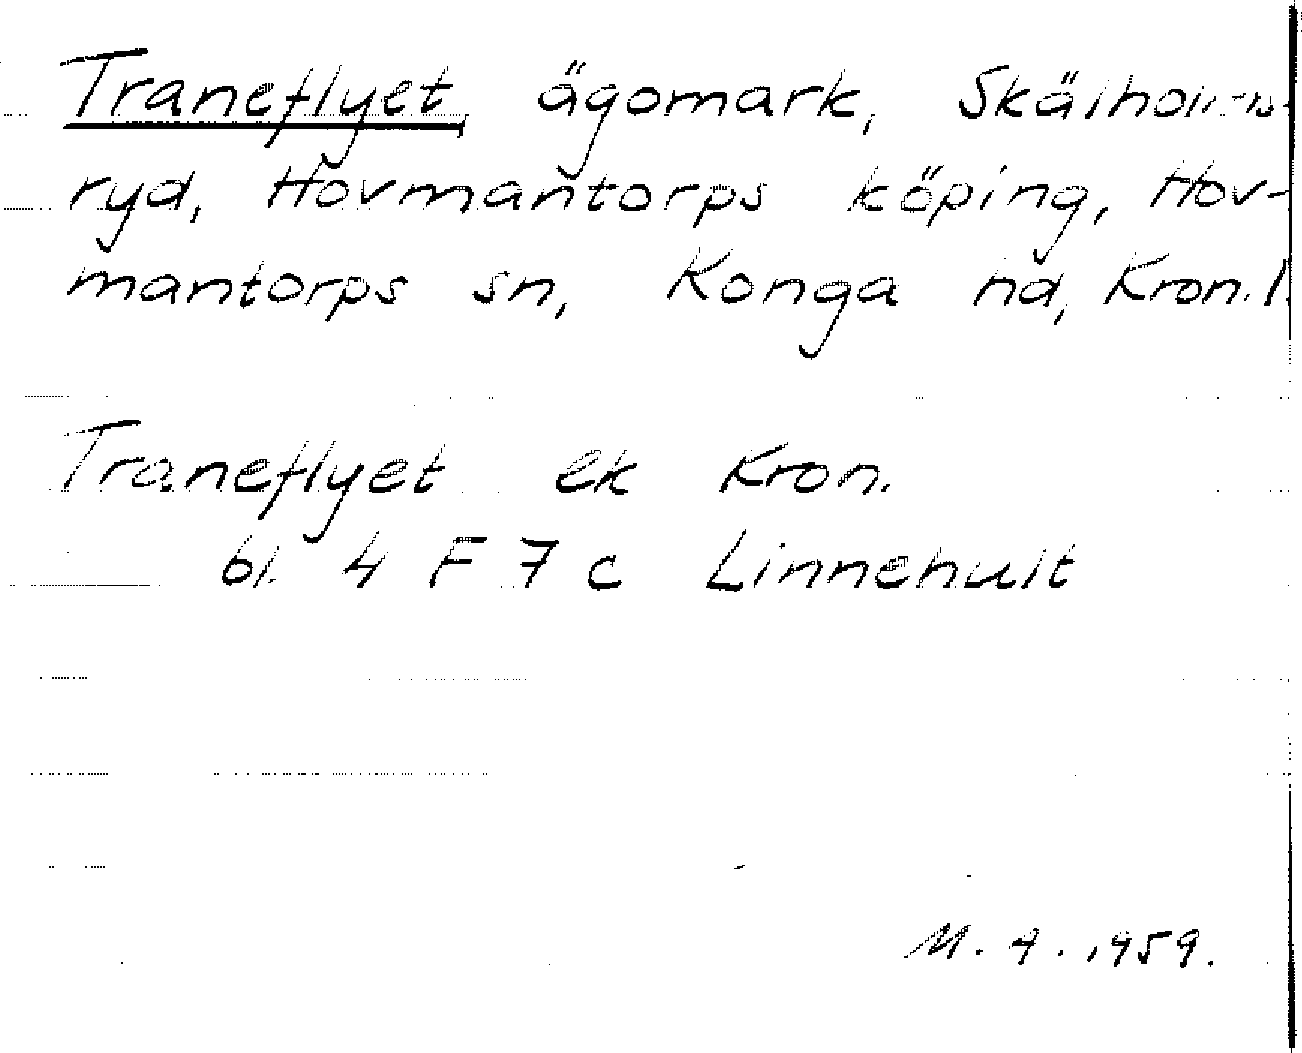 Traneflyet ägomark, Skälhoms-
ryd, Hovmantorps köping, Hov-
mantorps sn, Konga hd, Kron.l.
Traneflyet ek Kron.
bl. 4 F 7 c Linnehult
M. A. 1959.